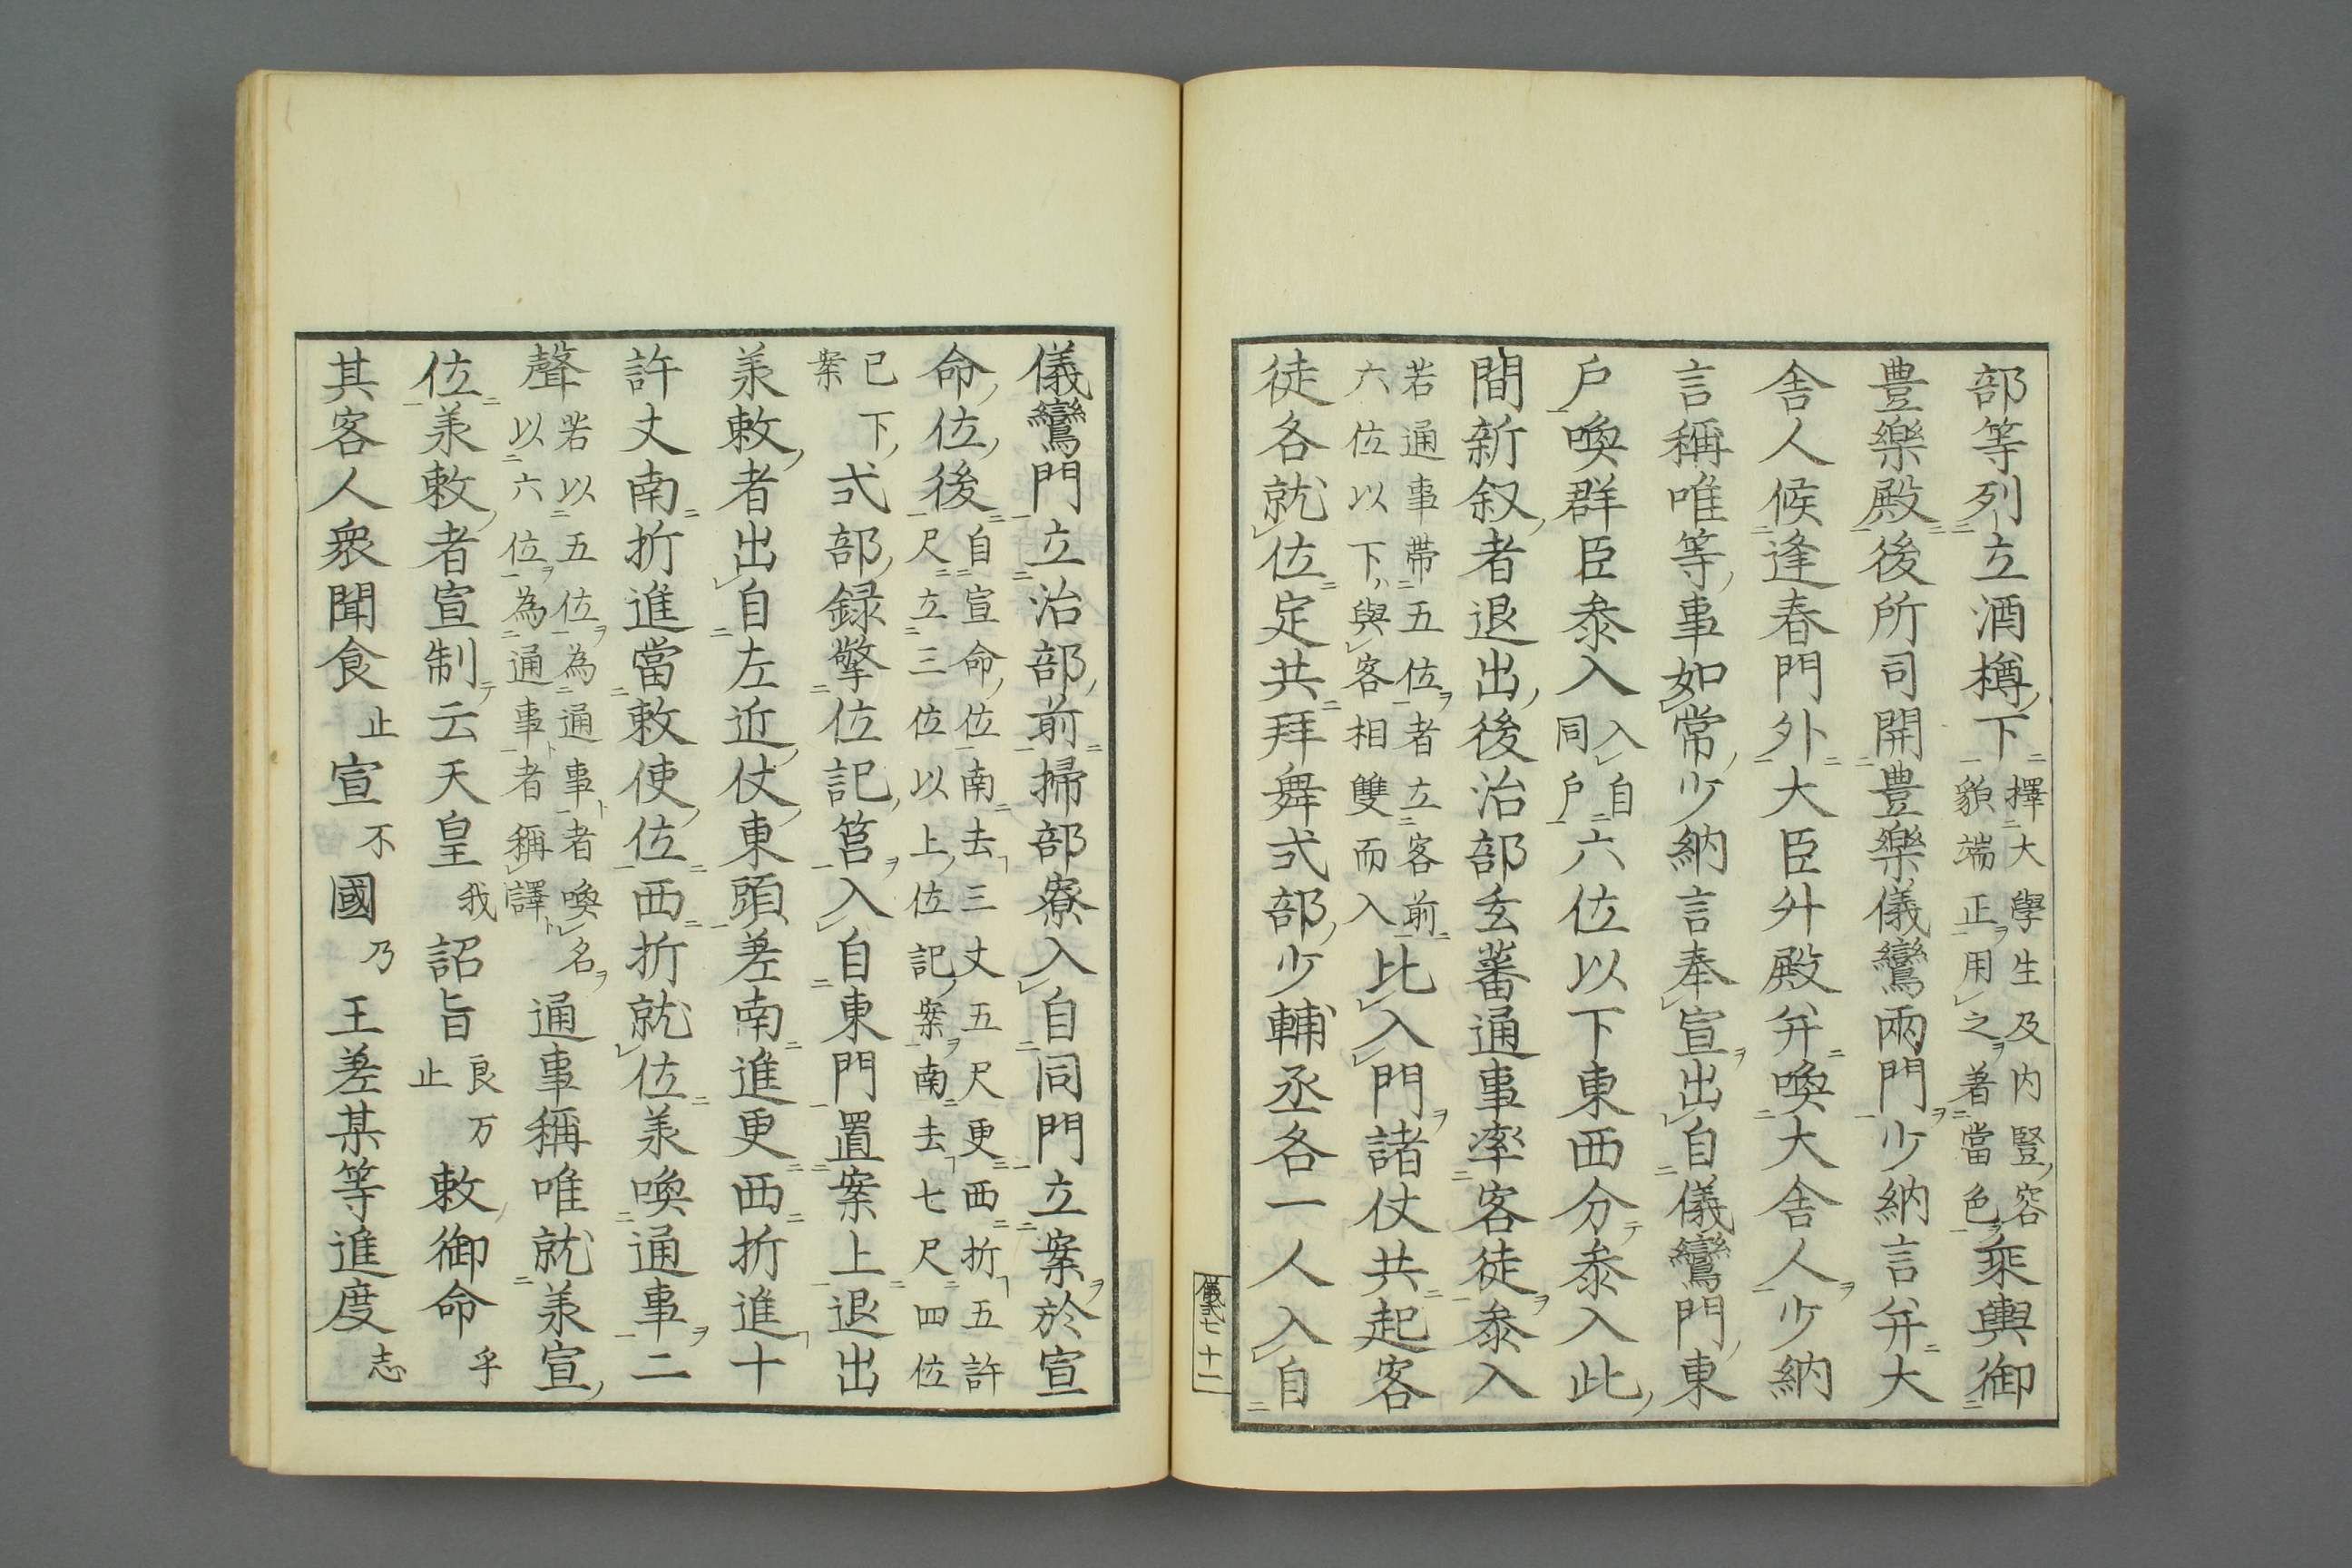 部等列立酒樽下擇大學生及内豎容貌端正用之著當色乘輿御
豊樂殿後所司開豊樂儀鸞兩門少納言并大
舎人候逢春門外大臣升殿并喚大舎人少納
言稱唯等事如常少納言奉宣出自儀鸞門東
戶喚群臣叅入入自同戶六位以下東西分叅入此
間新叙者退出後治部玄蕃通事率客徒叅入
若通事帶五位者立客前六位以下與客相雙而入比入門諸仗共起客
徒各就位定共拜舞式部少輔丞各一人入自
儀式七 十二
儀鸞門立治部前掃部寮入自同門立案於宣
命位後自宣命位南去三丈五尺更西折五許尺立三位以上位記案南去七尺四位
已下案式部録擎位記筥入自東門置案上退出
羕敕者出自左近仗東頭差南進更西折進十
許丈南折進當敕使位西折就位羕喚通事二
聲若以五位為通事者喚名以六位為通事者稱譯通事稱唯就羕宣
位羕敕者宣制云天皇我詔旨良万止敕御命乎
其客人衆聞食止宣不國乃王差某等進度志